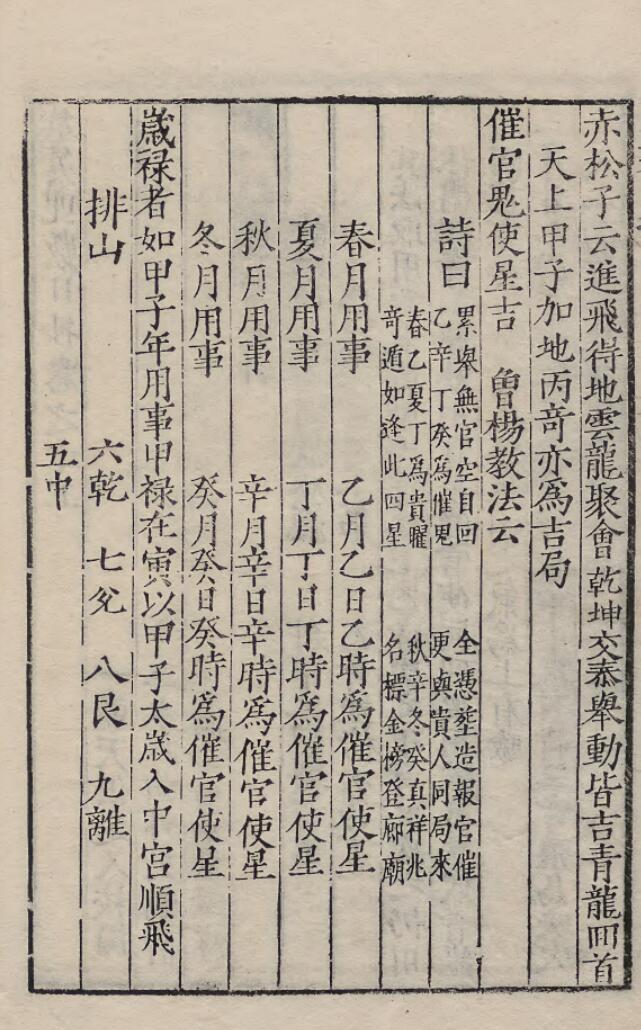 赤松子云進飛得地雲龍聚會乾坤交泰舉動皆吉青龍囬首
天上甲子加地丙竒亦為吉局
催官鬼使星吉　曾楊教法云
詩曰
累舉無官空自回　全憑塟造報官催
乙辛丁癸為催鬼　更與貴人同局來
春乙夏丁為貴曜　秋辛冬癸真祥兆
竒遁如逢此四星　名標金榜登廊廟
春月用事　乙月乙日乙時為催官使星
夏月用事　丁月丁日丁時為催官使星
秋月用事　辛月辛日辛時為催官使星
冬月用事　癸月癸日癸時為催官使星
歲禄者如甲子年用事甲禄在寅以甲子太歲入中宮順飛
排山　六乾　七兊　八艮　九離
五中